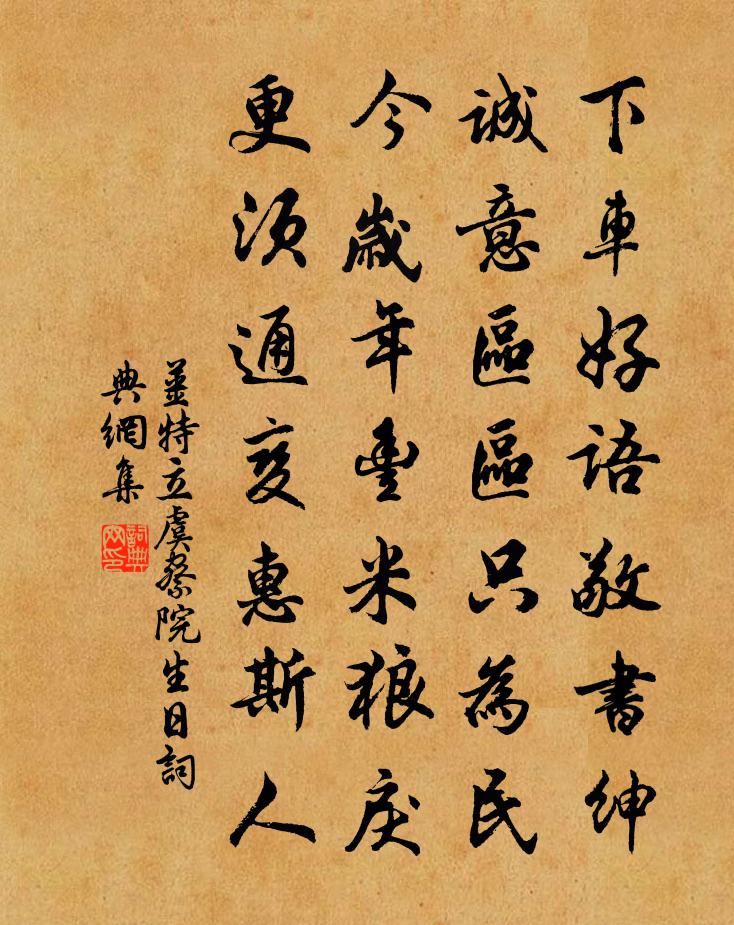 下車好語敬書紳
誠意區區只為民
今歲年豐米狼戾
更須通變惠斯人
姜特立虞察院生日詞
典網集
詞典网印